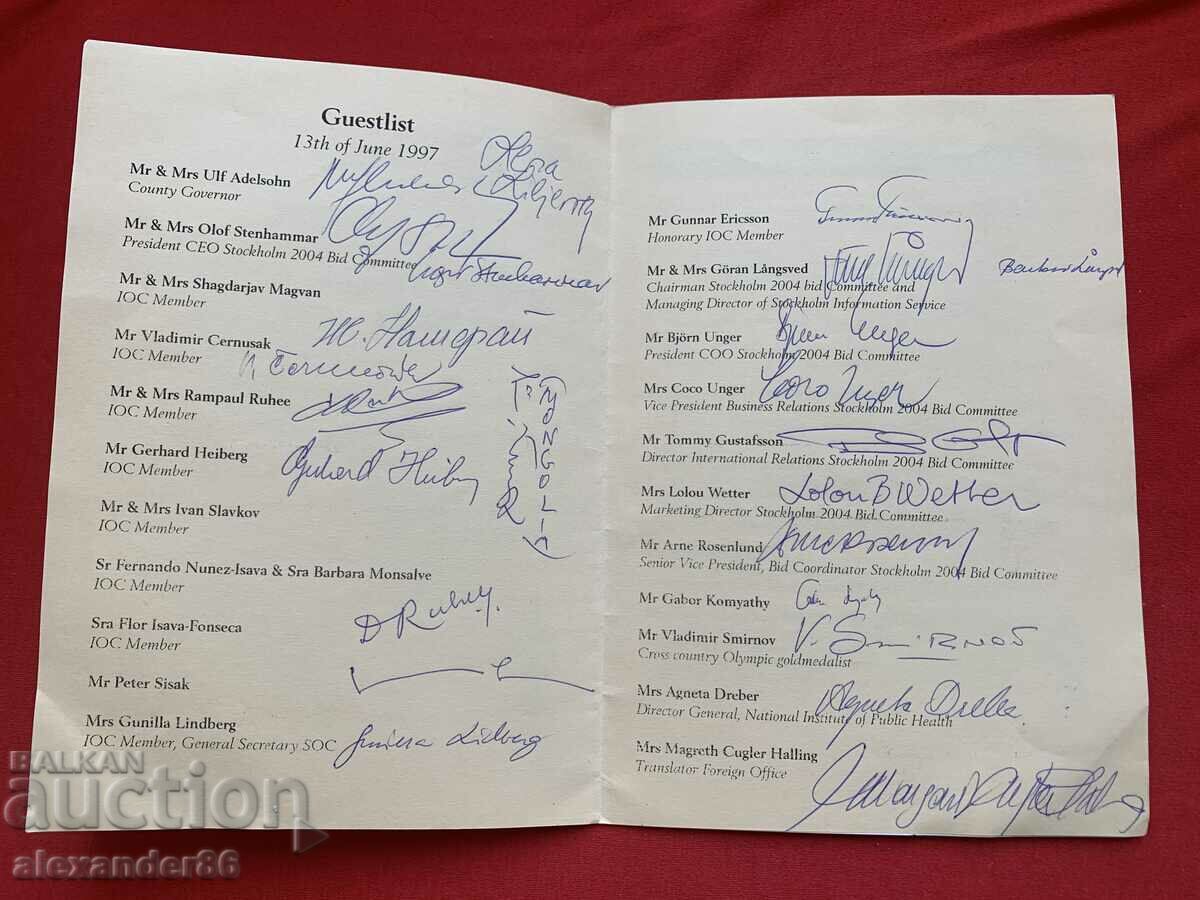 Guestlist
13th of June 1997
Mr & Mrs Ulf Adelsohn
County Governor
Mr & Mrs Olof Stenhammar
President CEO Stockholm 2004 Bid Committee
Mr & Mrs Shagdarjav Magvan
IOC Member
Mr Vladimir Cernusak
IOC Member
Mr & Mrs Rampaul Ruhee
IOC Member
Mr Gerhard Heiberg
IOC Member
Gerhard Heiberg
MONGOLIA
Mr & Mrs Ivan Slavkov
IOC Member
Sr Fernando Nunez-Isava & Sra Barbara Monsalve
IOC Member
Sra Flor Isava-Fonseca
IOC Member
Mr Peter Sisak
Mrs Gunilla Lindberg
IOC Member, General Secretary SOC
Gunilla Lindberg
Mr Gunnar Ericsson
Honorary IOC Member
Mr & Mrs Göran Långsved
Chairman Stockholm 2004 bid Committee and
Managing Director of Stockholm Information Service
Mr Björn Unger
Björn Unger
President COO Stockholm 2004 Bid Committee
Mrs Coco Unger
Coco Unger
Vice President Business Relations Stockholm 2004 Bid Committee
Mr Tommy Gustafsson
Director International Relations Stockholm 2004 Bid Committee
Mrs Lolou Wetter
Lolou B Wetter
Marketing Director Stockholm 2004 Bid Committee
Mr Arne Rosenlund
Senior Vice President, Bid Coordinator Stockholm 2004 Bid Committee
Mr Gabor Komyathy
Mr Vladimir Smirnov
V. Smirnov
Cross country Olympic goldmedalist
Mrs Agneta Dreber
Agneta Dreber
Director General, National Institute of Public Health
Mrs Magreth Cugler Halling
Translator Foreign Office
BALKAN
auction
alexander86